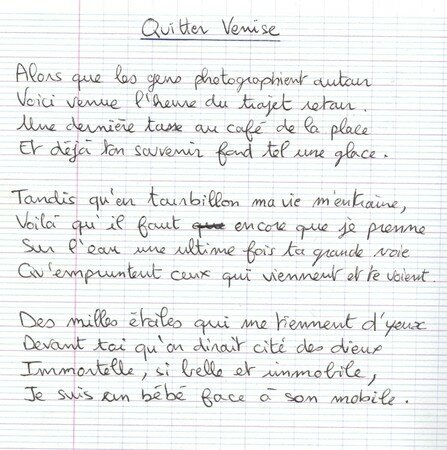 Quitter Venise
Alors que les gens photographient autour
Voici venue l'heure du trajet retour.
Une dernière tasse au café de la place
Et déjà ton souvenir fond tel une glace.
Tandis qu'en tourbillon ma vie m'entraine,
Voilà qu'il faut que encore que je prenne
Sur l'eau une ultime fois ta grande voie
Qu'empruntent ceux qui viennent et te voient.
Des milles étoiles qui me tiennent d'yeux
Devant toi qu'on dirait cité des dieux
Immortelle, si belle et immobile,
Je suis un bébé face à son mobile.